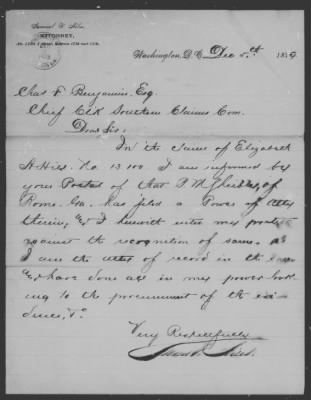 ATTORNEY,
Washington, D.C. Dec 5th 1879
Chas F. Benjamin, Esq.
Chief Clk Southern Claims Com.
Dear Sir:
In the claim of Elizabeth
A Hill. No 13.100 I am informed by
your Postal that
Rome Ga. has filed a Power of Atty
therein, & I herewith enter my protest
against the recognition of same. as
I am the atty of record in the case
& have done all in my power look
ing to the procurement of the evi
dence, &c.
Very Respectfully